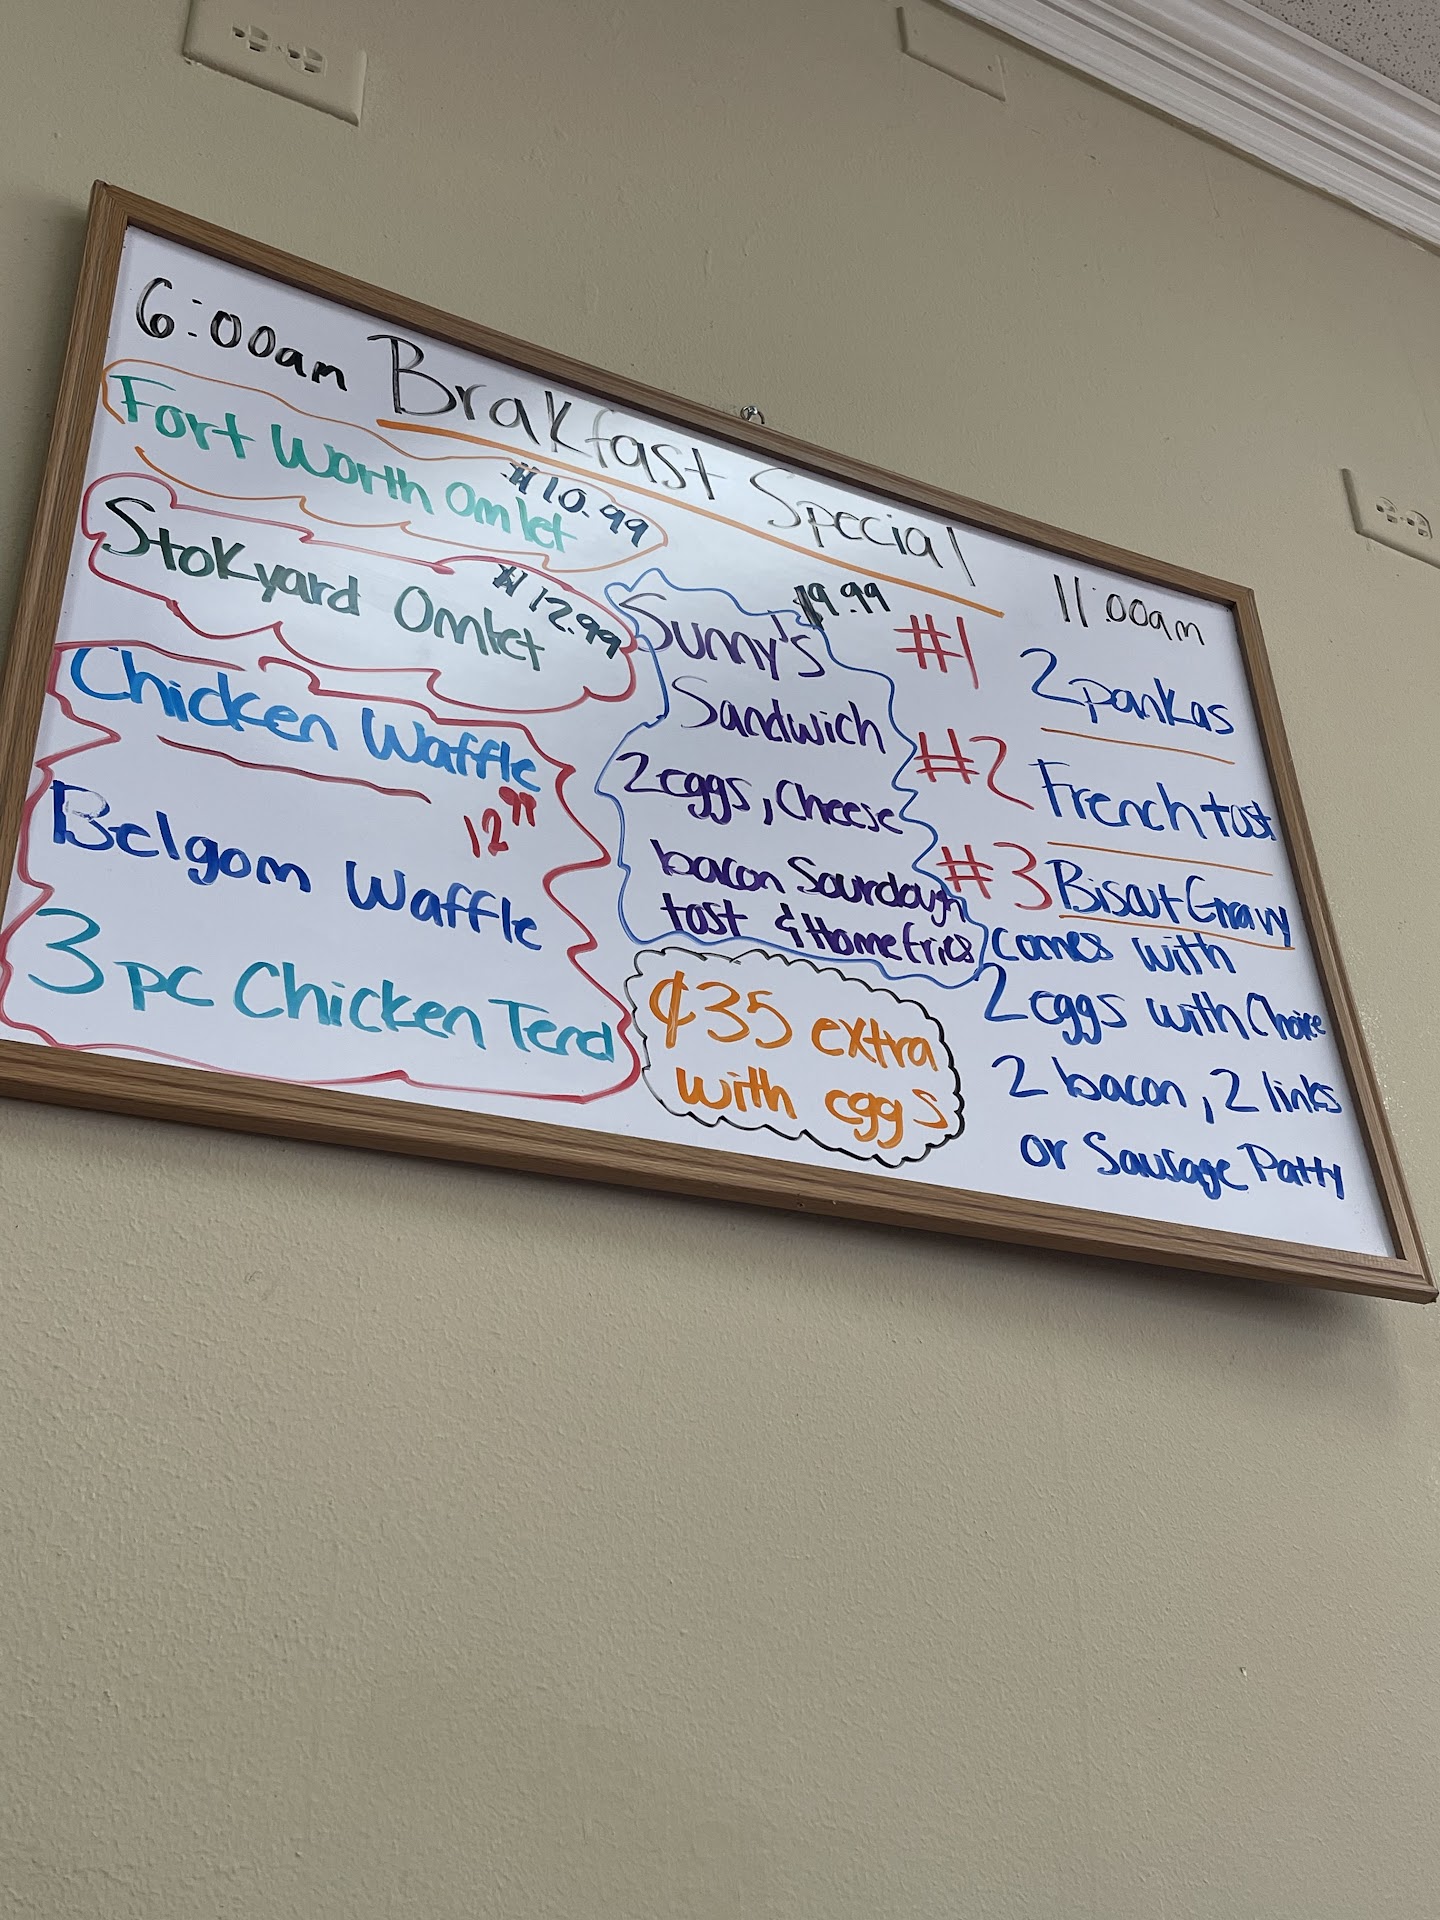 6:00am Brakfast Special 11:00am
Fort Worth Omlet
$10.99
Stokyard Omlet
$12.99
Chicken Waffle
12.99
Belgom Waffle
3 pc Chicken Tend
Sunny's
$9.99
Sandwich
2 eggs, Cheese
bacon Sourdough
tost & Home fries
¢35 extra
with eggs
#1 2 pankas
#2 French tost
#3 Biscut Gravy
comes with
2 eggs with Choice
2 bacon, 2 links
or Sausage Patty